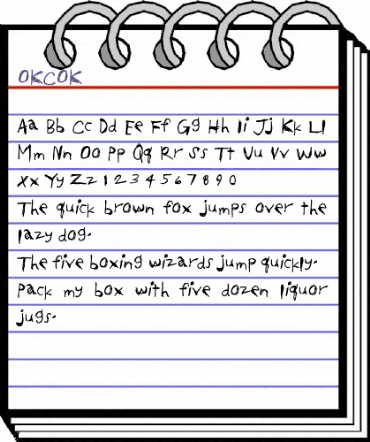 OKCOK
Aa Bb Cc Dd Ee Ff Gg Hh Ii Jj Kk Ll
Mm Nn Oo Pp Qq Rr Ss Tt Uu Vv Ww
Xx Yy Zz 1 2 3 4 5 6 7 8 9 0
The quick brown fox jumps over the
lazy dog.
The five boxing wizards jump quickly.
Pack my box with five dozen liquor
jugs.